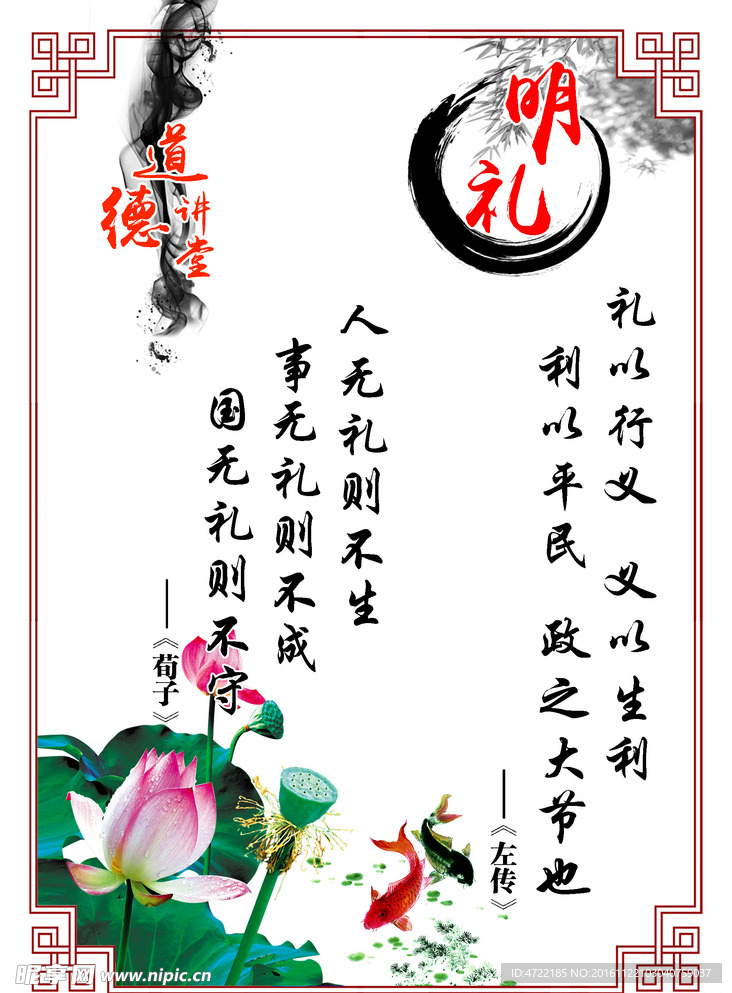 明礼
道德讲堂
礼以行义 义以生利
利以平民 政之大节也
——《左传》
人无礼则不生
事无礼则不成
国无礼则不守
——《荀子》
昵享网 www.nipic.cn
ID:4722185 NO:20161122103040759037